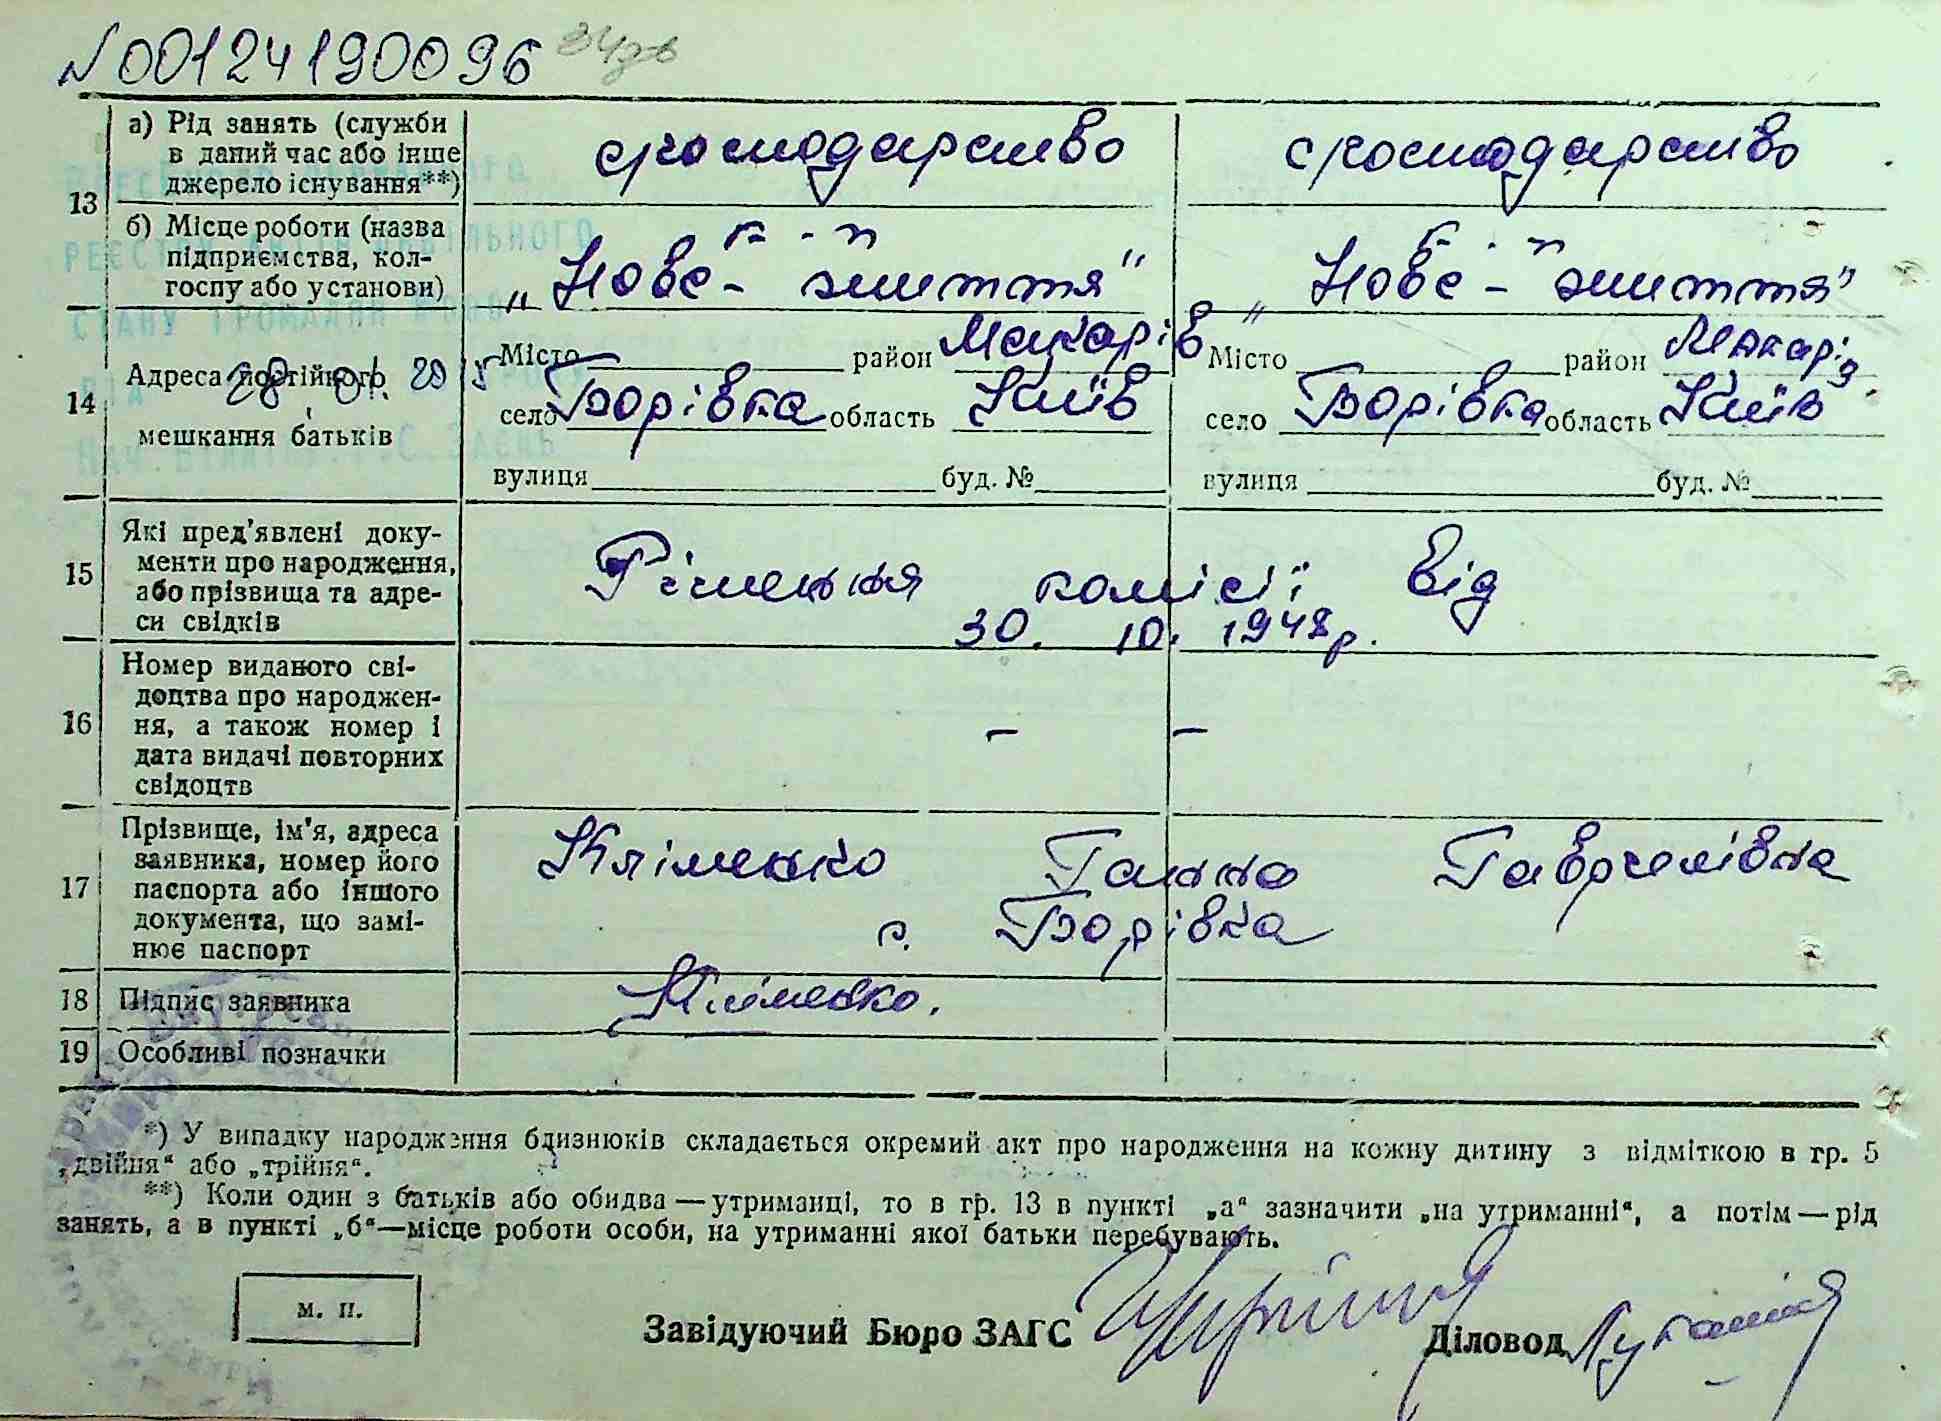 N00124190096
а) Рід занять (служби
в даний час або інше
джерело існування**)
с господарство
с господарство
13
б) Місце роботи (назва
підприємства, кол-
госпу або установи)
к-п
„Нове-життя"
к-п
„Нове-життя"
14
Адреса постійного
мешкання батьків
Місто район Макарів
село Борівка область Київ
вулиця буд. №
Місто район Макарів
село Борівка область Київ
вулиця буд. №
15
Які пред'явлені доку-
менти про народження,
або прізвища та адре-
си свідків
Рішення комісії від
30. 10. 1948р.
16
Номер виданого сві-
доцтва про народжен-
ня, а також номер і
дата видачі повторних
свідоцтв
– –
17
Прізвище, ім'я, адреса
заявника, номер його
паспорта або іншого
документа, що замі-
нює паспорт
Кліменко Ганна Гаврилівна
с. Борівка
18 Підпис заявника
Кліменко.
19 Особливі позначки
*) У випадку народження близнюків складається окремий акт про народження на кожну дитину з відміткою в гр. 5
„двійня“ або „трійня“.
**) Коли один з батьків або обидва — утриманці, то в гр. 13 в пункті „а“ зазначити „на утриманні“, а потім — рід
занять, а в пункті „б“—місце роботи особи, на утриманні якої батьки перебувають.
м. п.
Завідуючий Бюро ЗАГС
Діловод